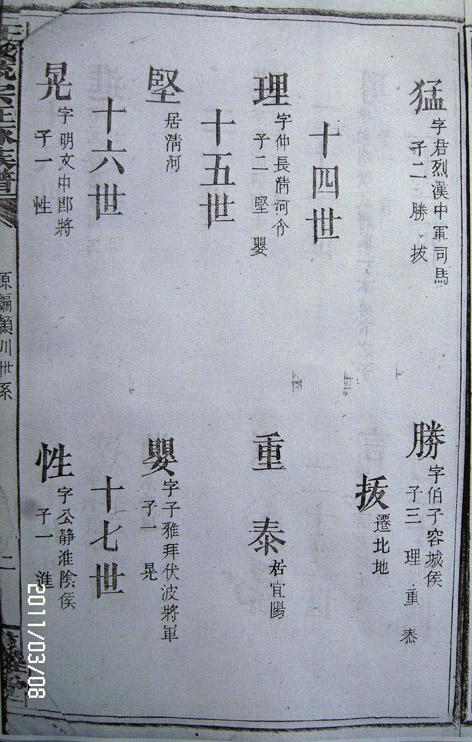 猛
字君烈漢中軍司馬
子二 勝 拔
勝
字伯子容城侯
子三 理 重 泰
拔
遷北地
十四世
理
字仲長清河令
子二 堅 嬰
重
泰
居宜陽
十五世
堅
居清河
嬰
字子雅拜伏波將軍
子一 晃
十六世
晃
字明文中郎將
子一 性
十七世
性
字公靜淮陰侯
子一
原編潁川世系
二
2011/03/08